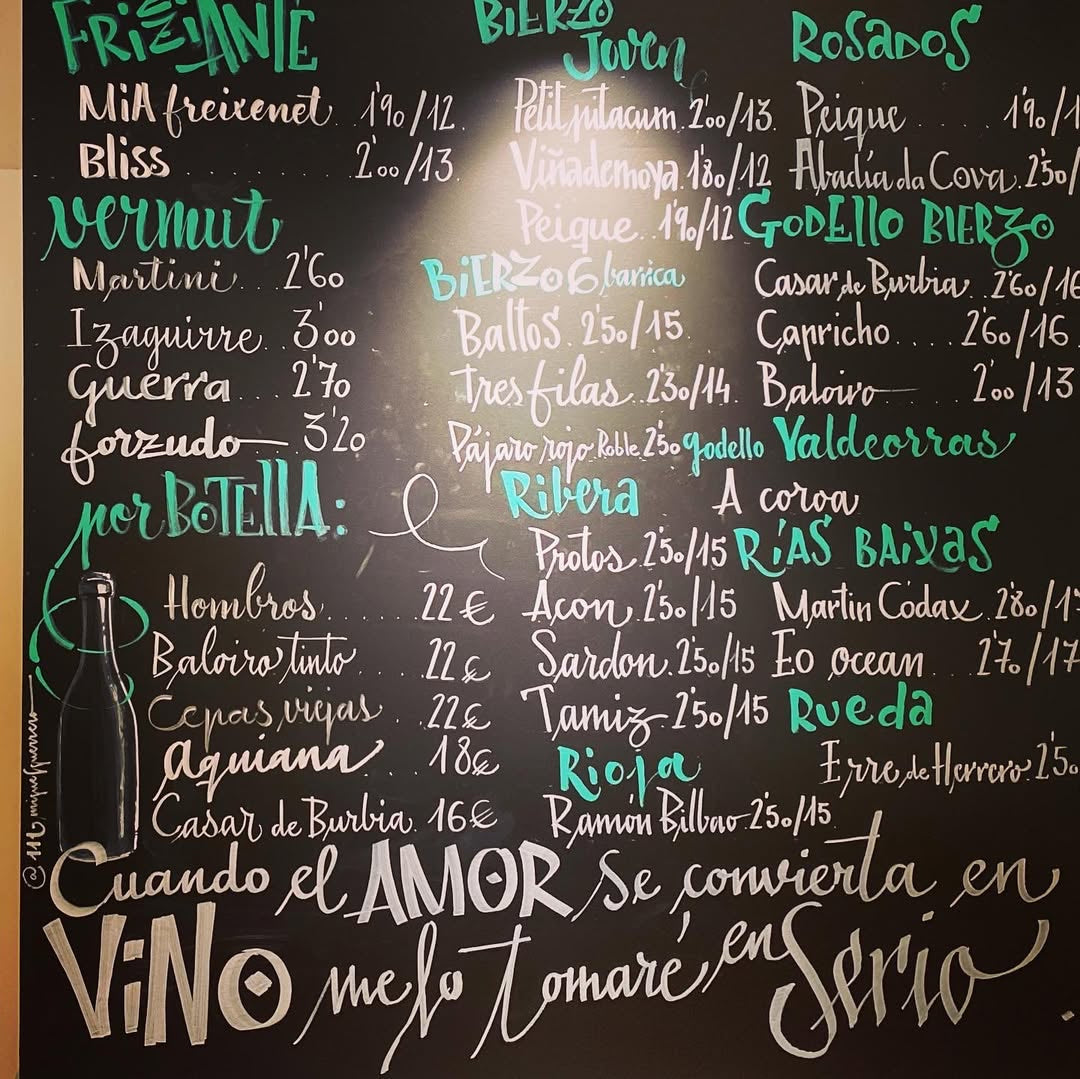 FRiZZANTE
MiA freixenet 1'90/12
Bliss 2'00/13
Vermut
Martini 2'60
Izaguirre 3'00
Guerra 2'70
forzudo 3'20
por BOTEllA:
Hombros 22€
Baloiro tinto 22€
Cepas viejas 22€
Aquiana 18€
Casar de Burbia 16€
BiERZO
Joven
Petit pitacum 2'00/13
Viñademoya 1'80/12
Peique 1'90/12
BiERZO 6 barrica
Baltos 2'50/15
Tres filas 2'30/14
Pájaro rojo Roble 2'50
Ribera
Protos 2'50/15
Acon 2'50/15
Sardon 2'50/15
Tamiz 2'50/15
Rioja
Ramón Bilbao 2'50/15
RosaDOS
Peique 1'90/1
Abadía da Cova 2'50/
GODEllo BIERZO
Casar de Burbia 2'60/16
Capricho 2'60/16
Baloiro 2'00/13
godello Valdeorras
A coroa
RíAS BAiXAS
Martin Códax 2'80/17
Eo ocean 2'70/17
Rueda
Erre de Herrero 2'50
Cuando el AMOR se convierta en
ViNO me lo tomaré en Serio